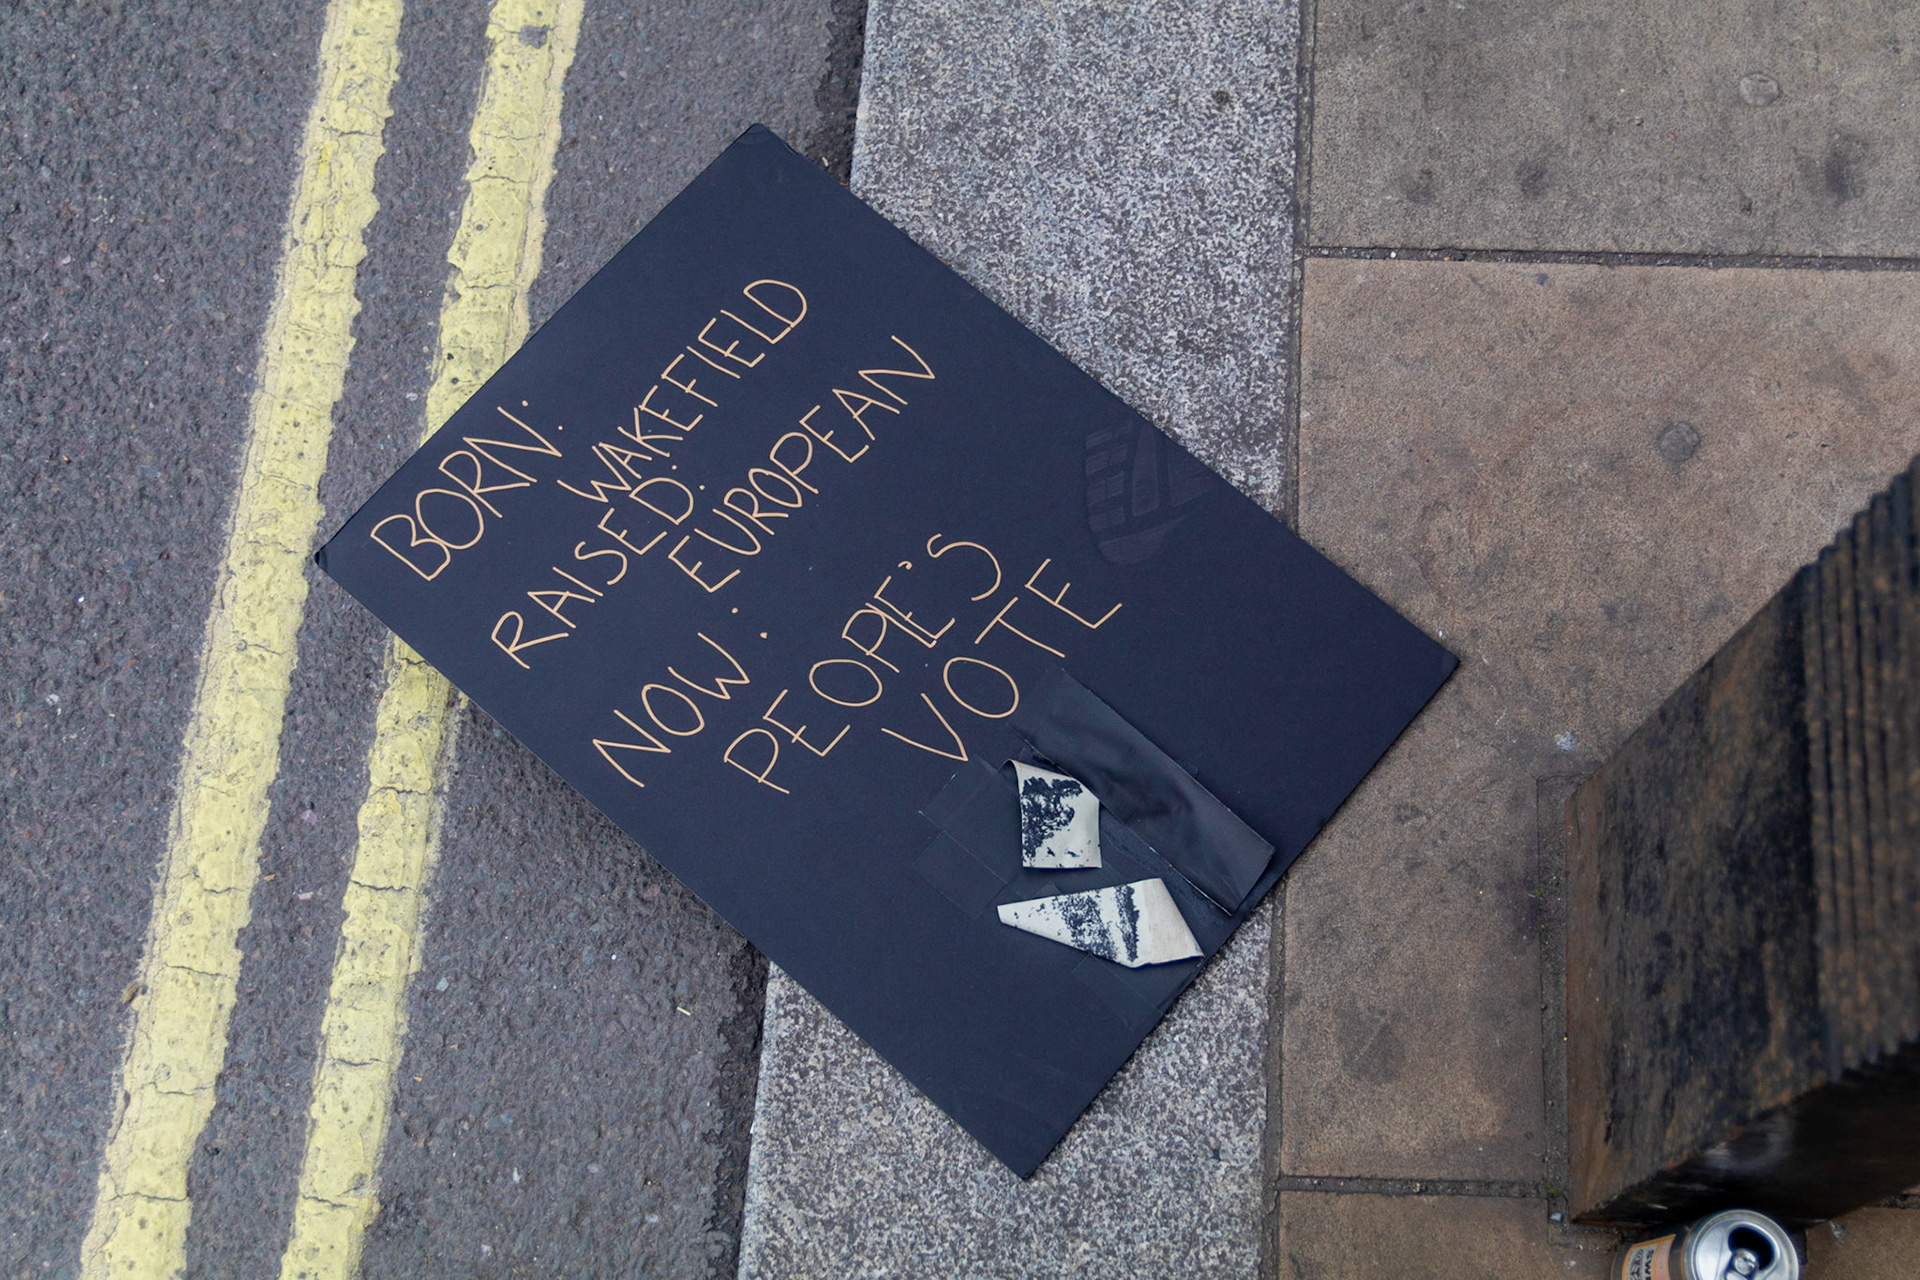 BORN:
WAKEFIELD
RAISED:
EUROPEAN
NOW:
PEOPLE'S
VOTE